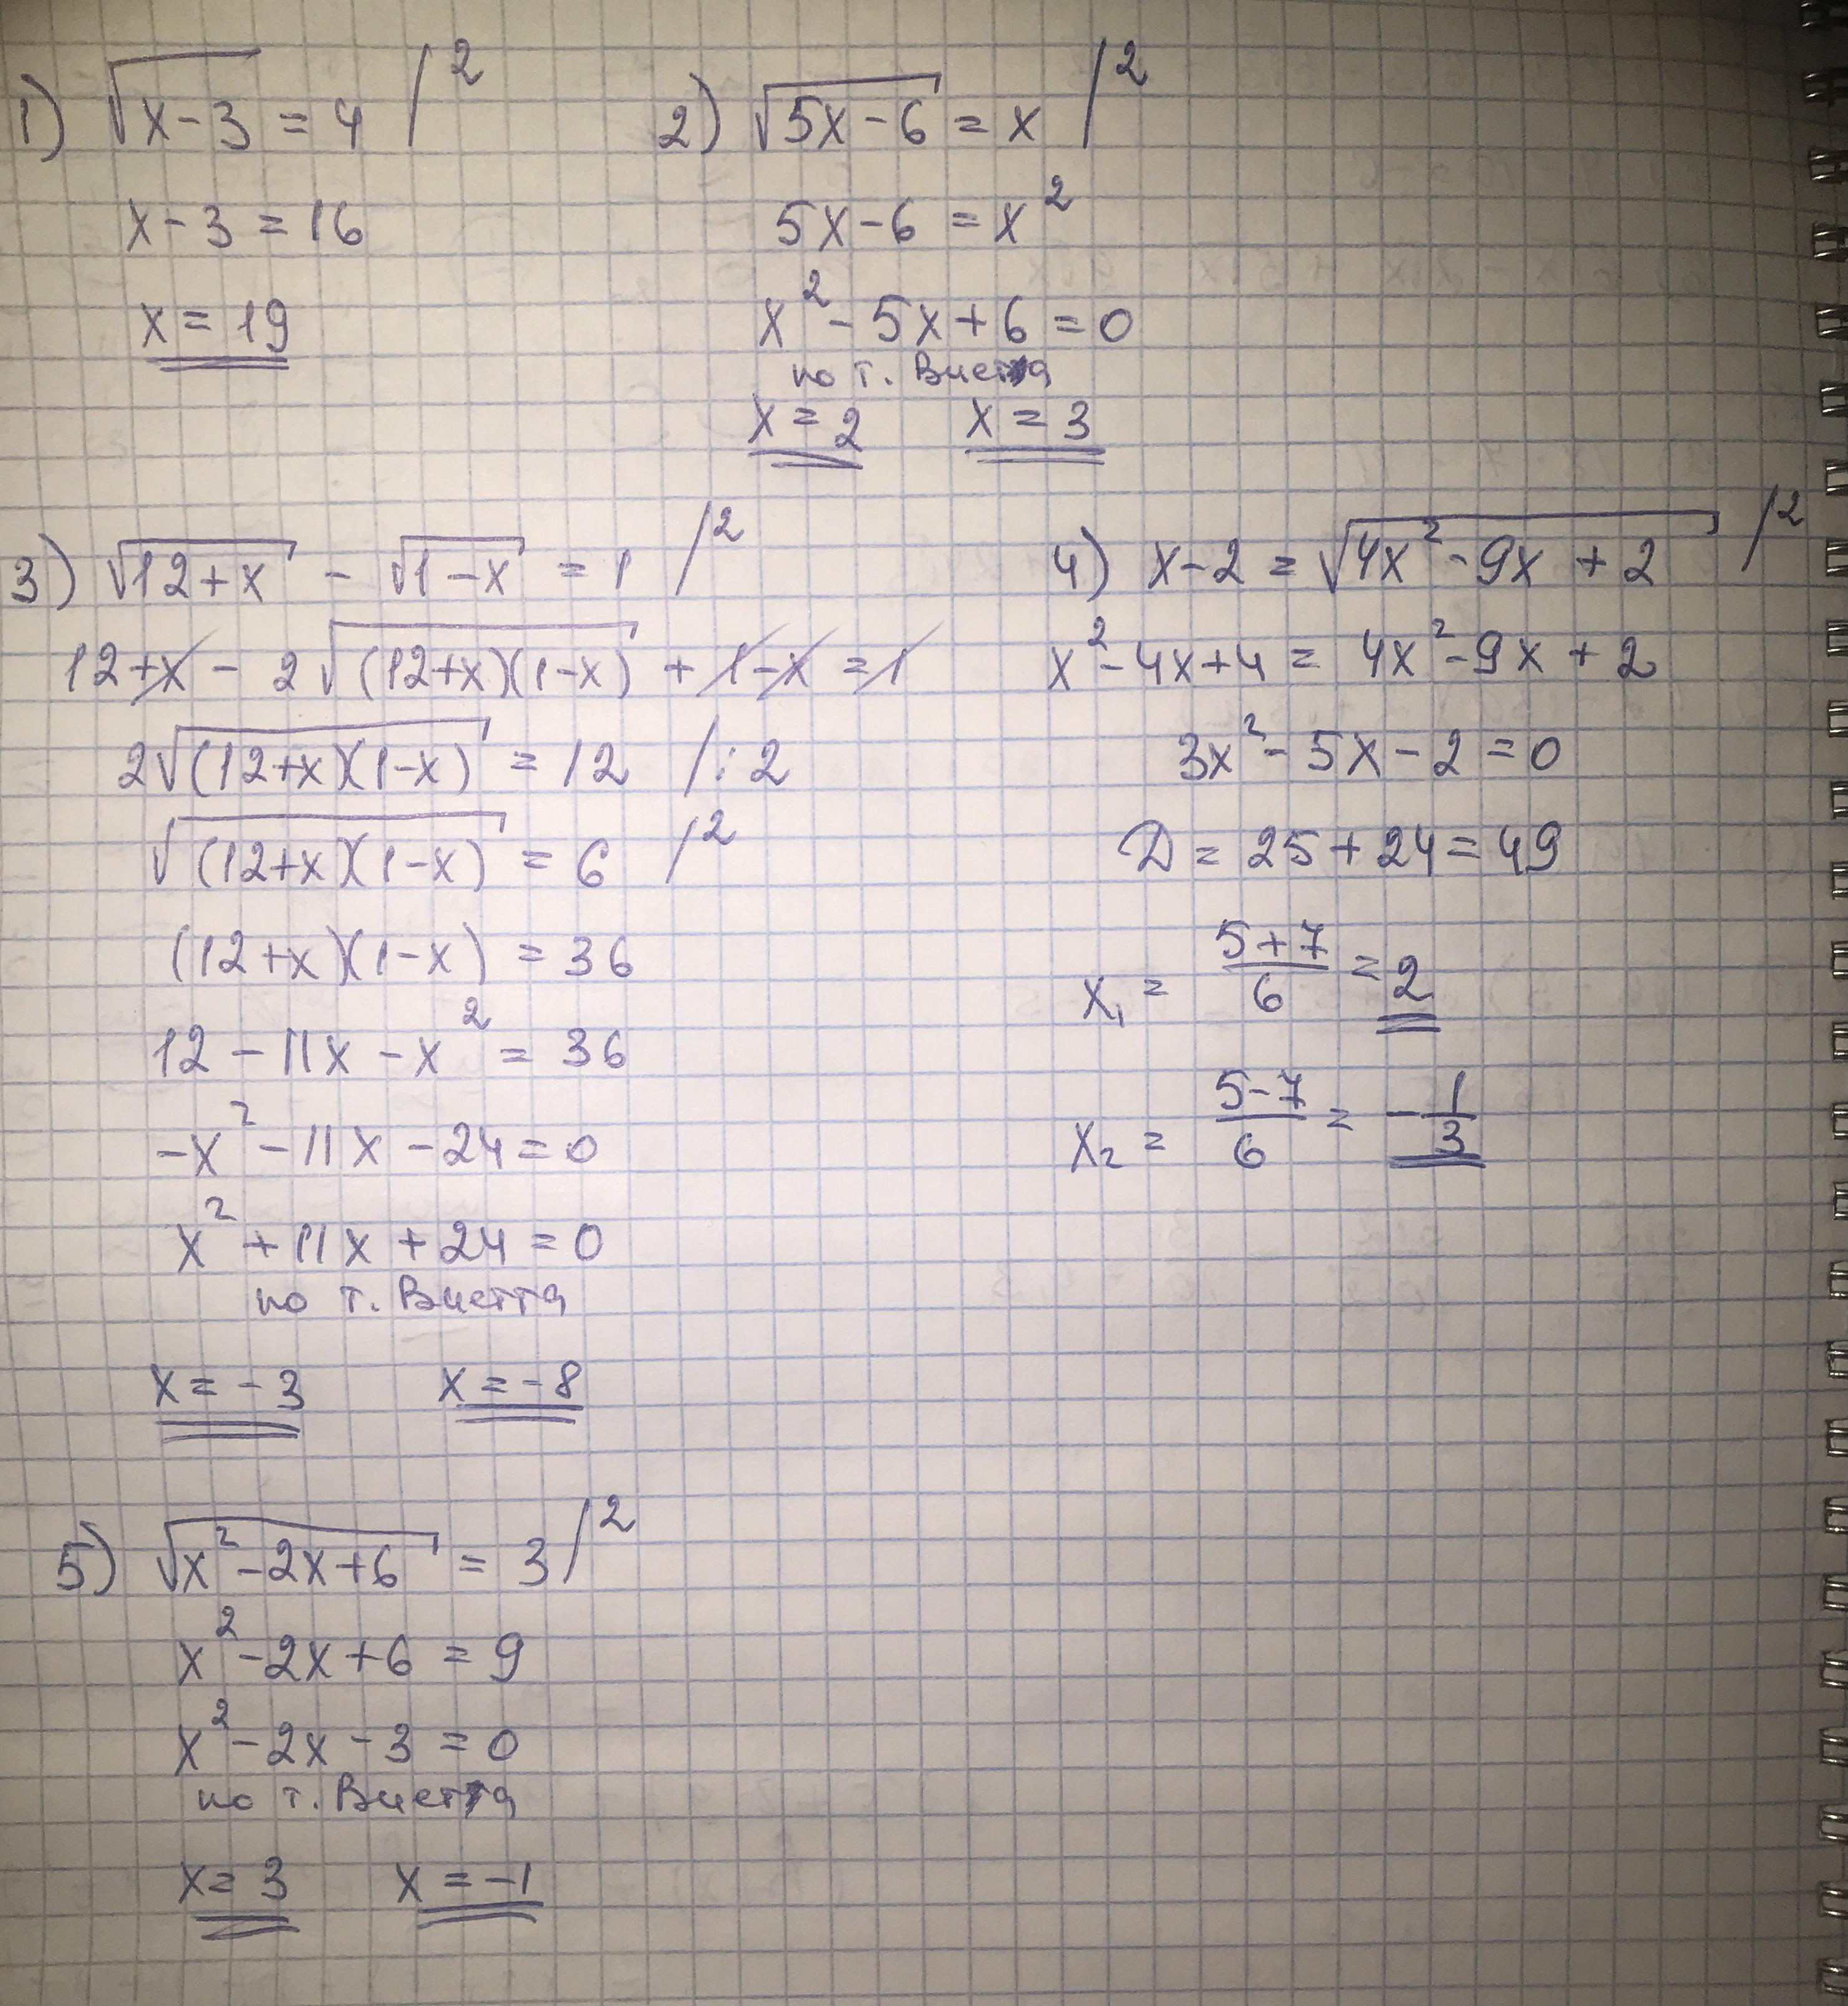 1) √(x-3) = 4 /²
x-3 = 16
x = 19
2) √(5x-6) = x /²
5x-6 = x²
x²-5x+6 = 0
по т. Виета
x = 2 x = 3
3) √(12+x) - √(1-x) = 1 /²
12+x - 2√((12+x)(1-x)) + 1-x = 1
2√((12+x)(1-x)) = 12 /:2
√((12+x)(1-x)) = 6 /²
(12+x)(1-x) = 36
12-11x-x² = 36
-x²-11x-24=0
x²+11x+24=0
по т. Виетта
x = -3 x = -8
4) x-2 = √(4x²-9x+2) /²
x²-4x+4 = 4x²-9x+2
3x²-5x-2=0
D = 25+24=49
x₁ = (5+7)/6 = 2
x₂ = (5-7)/6 = -1/3
5) √(x²-2x+6) = 3 /²
x²-2x+6 = 9
x²-2x-3=0
по т. Виетта
x = 3 x = -1